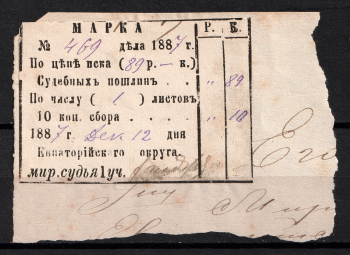 МАРКА Р. К.
№ 469 дѣла 1887 г.
По цѣнѣ иска (89 р. — к.)
Судебныхъ пошлинъ . . „ 89
По числу ( 1 ) листовъ
10 коп. сбора . . . . „ 10
1887 г. Дек. 12 дня
Евпаторійскаго округа.
мир. судья 1 уч.
Его
Мир